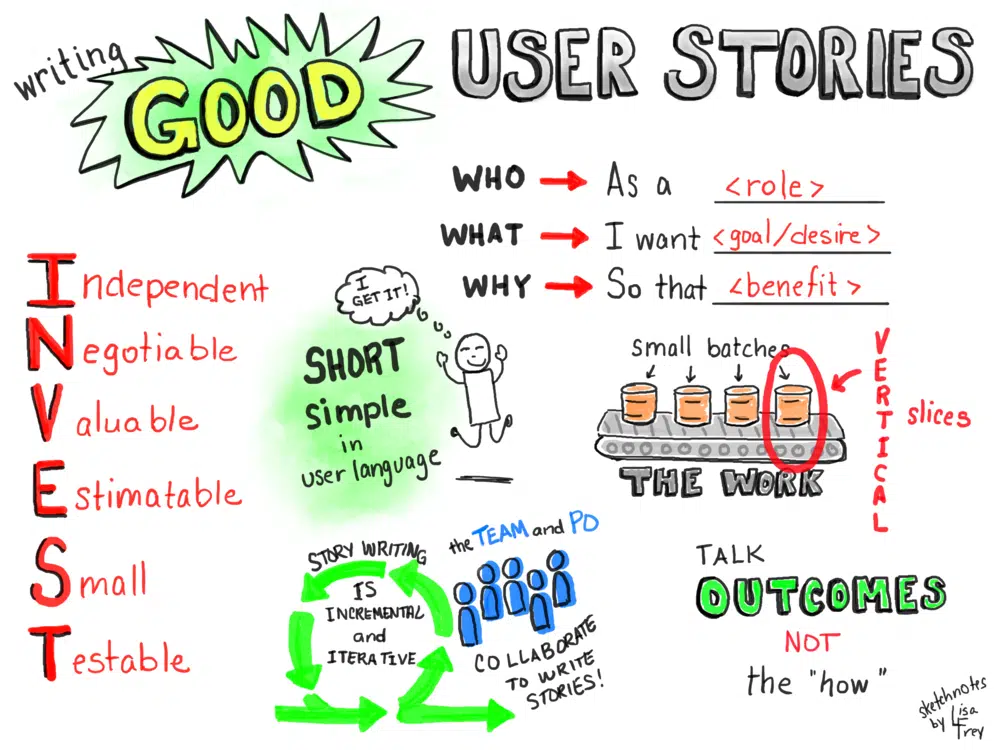 writing
GOOD
USER STORIES
WHO → As a <role>
WHAT → I want <goal/desire>
WHY → So that <benefit>
Independent
Negotiable
Valuable
Estimatable
Small
Testable
I
GET IT!
SHORT
simple
in
user language
small batches
THE WORK
VERTICAL
slices
STORY WRITING
IS
INCREMENTAL
and
ITERATIVE
the TEAM and PO
COLLABORATE
TO WRITE
STORIES!
TALK
OUTCOMES
NOT
the "how"
sketchnotes
by Lisa
Frey